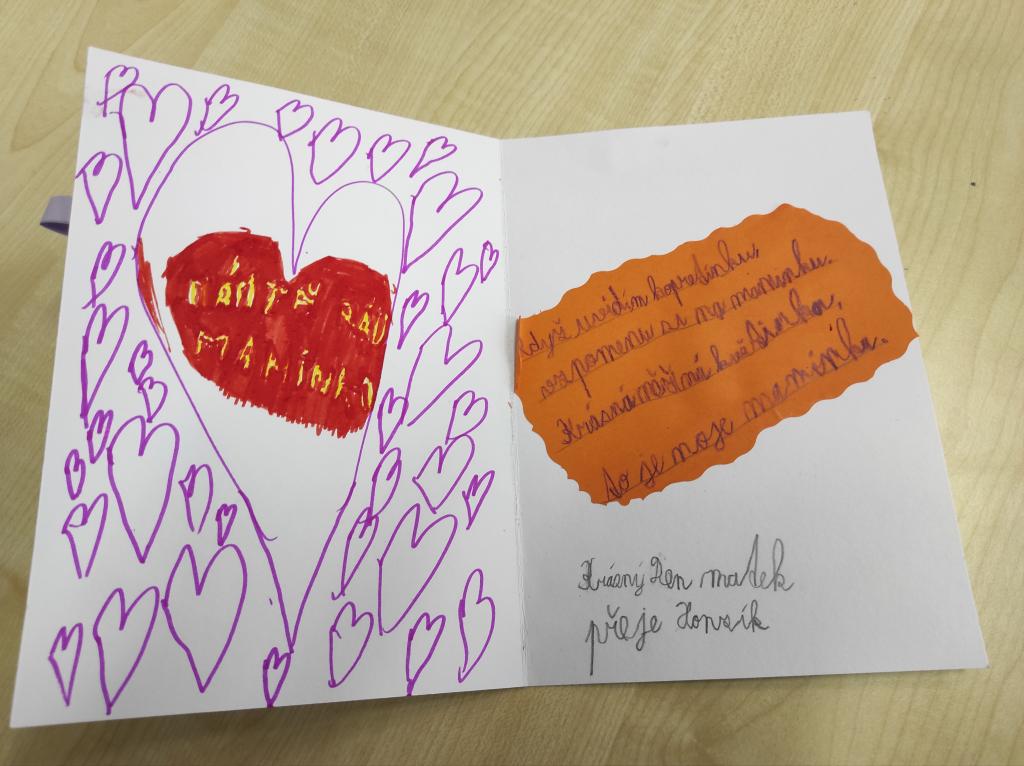 MÁM TĚ RÁD
MAMINKO
Když uvidím kopretinku,
vzpomenu si na maminku.
Krásná něžná květinka,
to je moje maminka.
Krásný Den matek
přeje Honzík